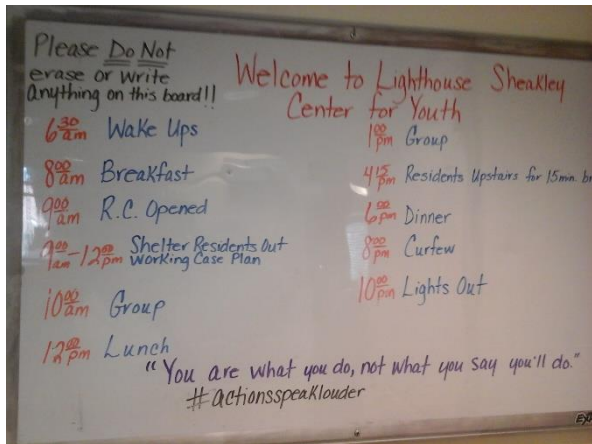 Please Do Not
erase or write
anything on this board!!
Welcome to Lighthouse Sheakley
Center for Youth
6 30 am Wake Ups
8 00 am Breakfast
9 00 am R.C. Opened
9 00 am - 12 00 pm Shelter Residents Out
Working Case Plan
10 00 am Group
12 00 pm Lunch
1 00 pm Group
4 15 pm Residents Upstairs for 15 min.
6 00 pm Dinner
8 00 pm Curfew
10 00 pm Lights Out
"You are what you do, not what you say you'll do."
#actionsspeaklouder